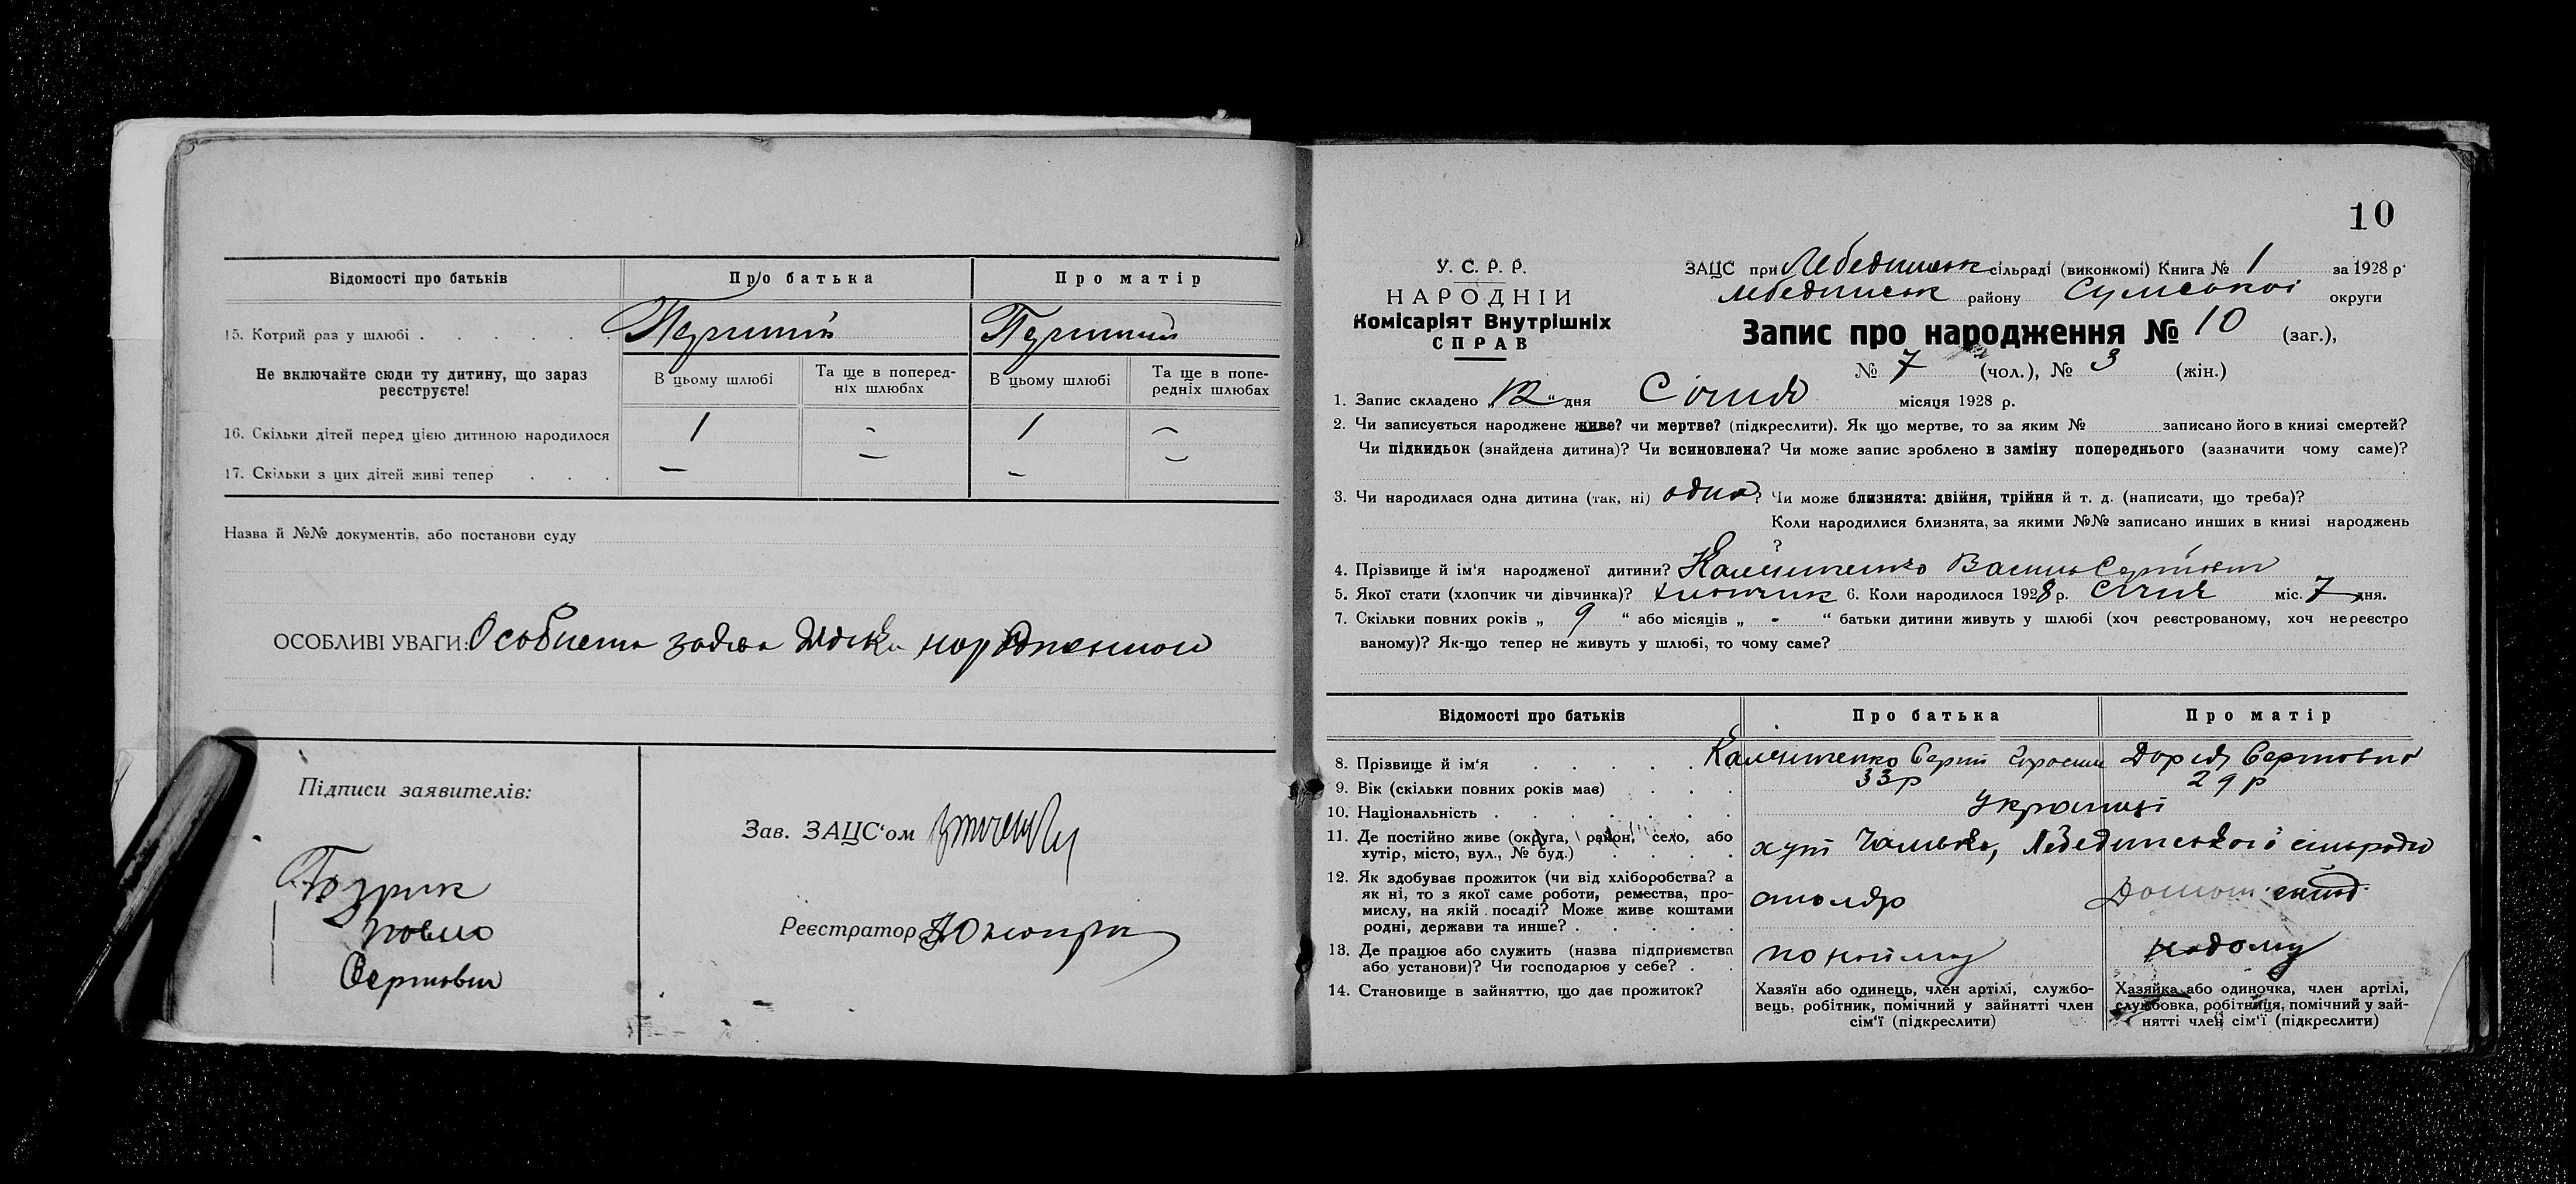 Відомості про батьків
Про батька
Про матір
15. Котрий раз у шлюбі
Перший
Перший
Не включайте сюди ту дитину, що зараз реєструєте!
В цьому шлюбі
Та ще в попередніх шлюбах
В цьому шлюбі
Та ще в попередніх шлюбах
16. Скільки дітей перед цією дитиною народилося
1 - 1 -
17. Скільки з цих дітей живі тепер . . .
- - - -
Назва й №№ документів, або постанови суду
ОСОБЛИВІ УВАГИ: Особиста заява
Підписи заявителів:
Павло
Сергієвич
Зав. ЗАЦС‘ом
Реєстратор
10
У. С. Р. Р.
НАРОДНІЙ
Комісаріят Внутрішніх
СПРАВ
ЗАЦС при Лебединськ сільраді (виконкомі) Книга № 1 за 1928 р.
Лебединськ району Сумської округи
Запис про народження № 10 (заг.),
№ 7 (чол.), № 3 (жін.)
1. Запис складено „12“ дня Січня місяця 1928 р.
2. Чи записується народжене живе? чи мертве? (підкреслити). Як що мертве, то за яким № записано його в книзі смертей?
Чи підкидьок (знайдена дитина)? Чи всиновлена? Чи може запис зроблено в заміну попереднього (зазначити чому саме)?
3. Чи народилася одна дитина (так, ні) одна? Чи може близнята: двійня, трійня й т. д. (написати, що треба)?
Коли народилися близнята, за якими №№ записано инших в книзі народжень
?
4. Прізвище й ім‘я народженої дитини? Василь Сергієвич
5. Якої стати (хлопчик чи дівчинка)? хлопчик 6. Коли народилося 1928 р. Січня міс. 7 дня.
7. Скільки повних років „ 9 “ або місяців „ - “ батьки дитини живуть у шлюбі (хоч реєстрованому, хоч нереєстро
ваному)? Як-що тепер не живуть у шлюбі, то чому саме?
Відомості про батьків
Про батька
Про матір
8. Прізвище й ім‘я . . . . .
Сергій
Дарія Сергіовна
9. Вік (скільки повних років має) . . .
33 р
29 р
10. Національність . . . . . . . .
Українці
11. Де постійно живе (округа, район, село, або
хутір, місто, вул., № буд.) . . . .
хут Лебединської сільради
12. Як здобуває прожиток (чи від хліборобства? а
як ні, то з якої саме роботи, ремества, про-
мислу, на якій посаді? Може живе коштами
родні, держави та инше? . . . . .
столяр
13. Де працює або служить (назва підприємства
або установи)? Чи господарює у себе? . .
по найму
надому
14. Становище в зайняттю, що дає прожиток?
Хазяїн або одинець, член артілі, службо-
вець, робітник, помічний у зайнятті член
сім‘ї (підкреслити)
Хазяйка або одиночка, член артілі,
службовка, робітниця, помічний у зай-
нятті член сім‘ї (підкреслити)